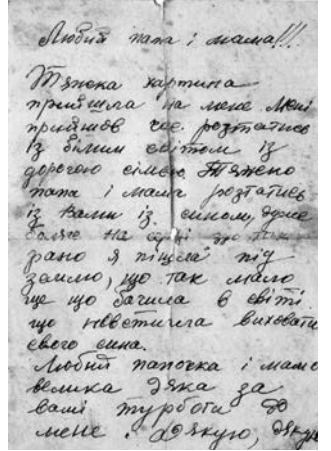 Любий папа і мама!!!
Тяжка картина
прийшла на мене Мені
прийшов час розтатись
із білим світом із
дорогою сімєю. Тяжко
папа і мама розтатись
із вами із сином, дуже
боляче на серці що так
рано я пішла під
землю, що так мало
ще що бачила в світі
що невстигла виховати
свого сина.
Любий папочка і мамо
велика дяка за
ваші турботи до
мене. Дякую, дякую